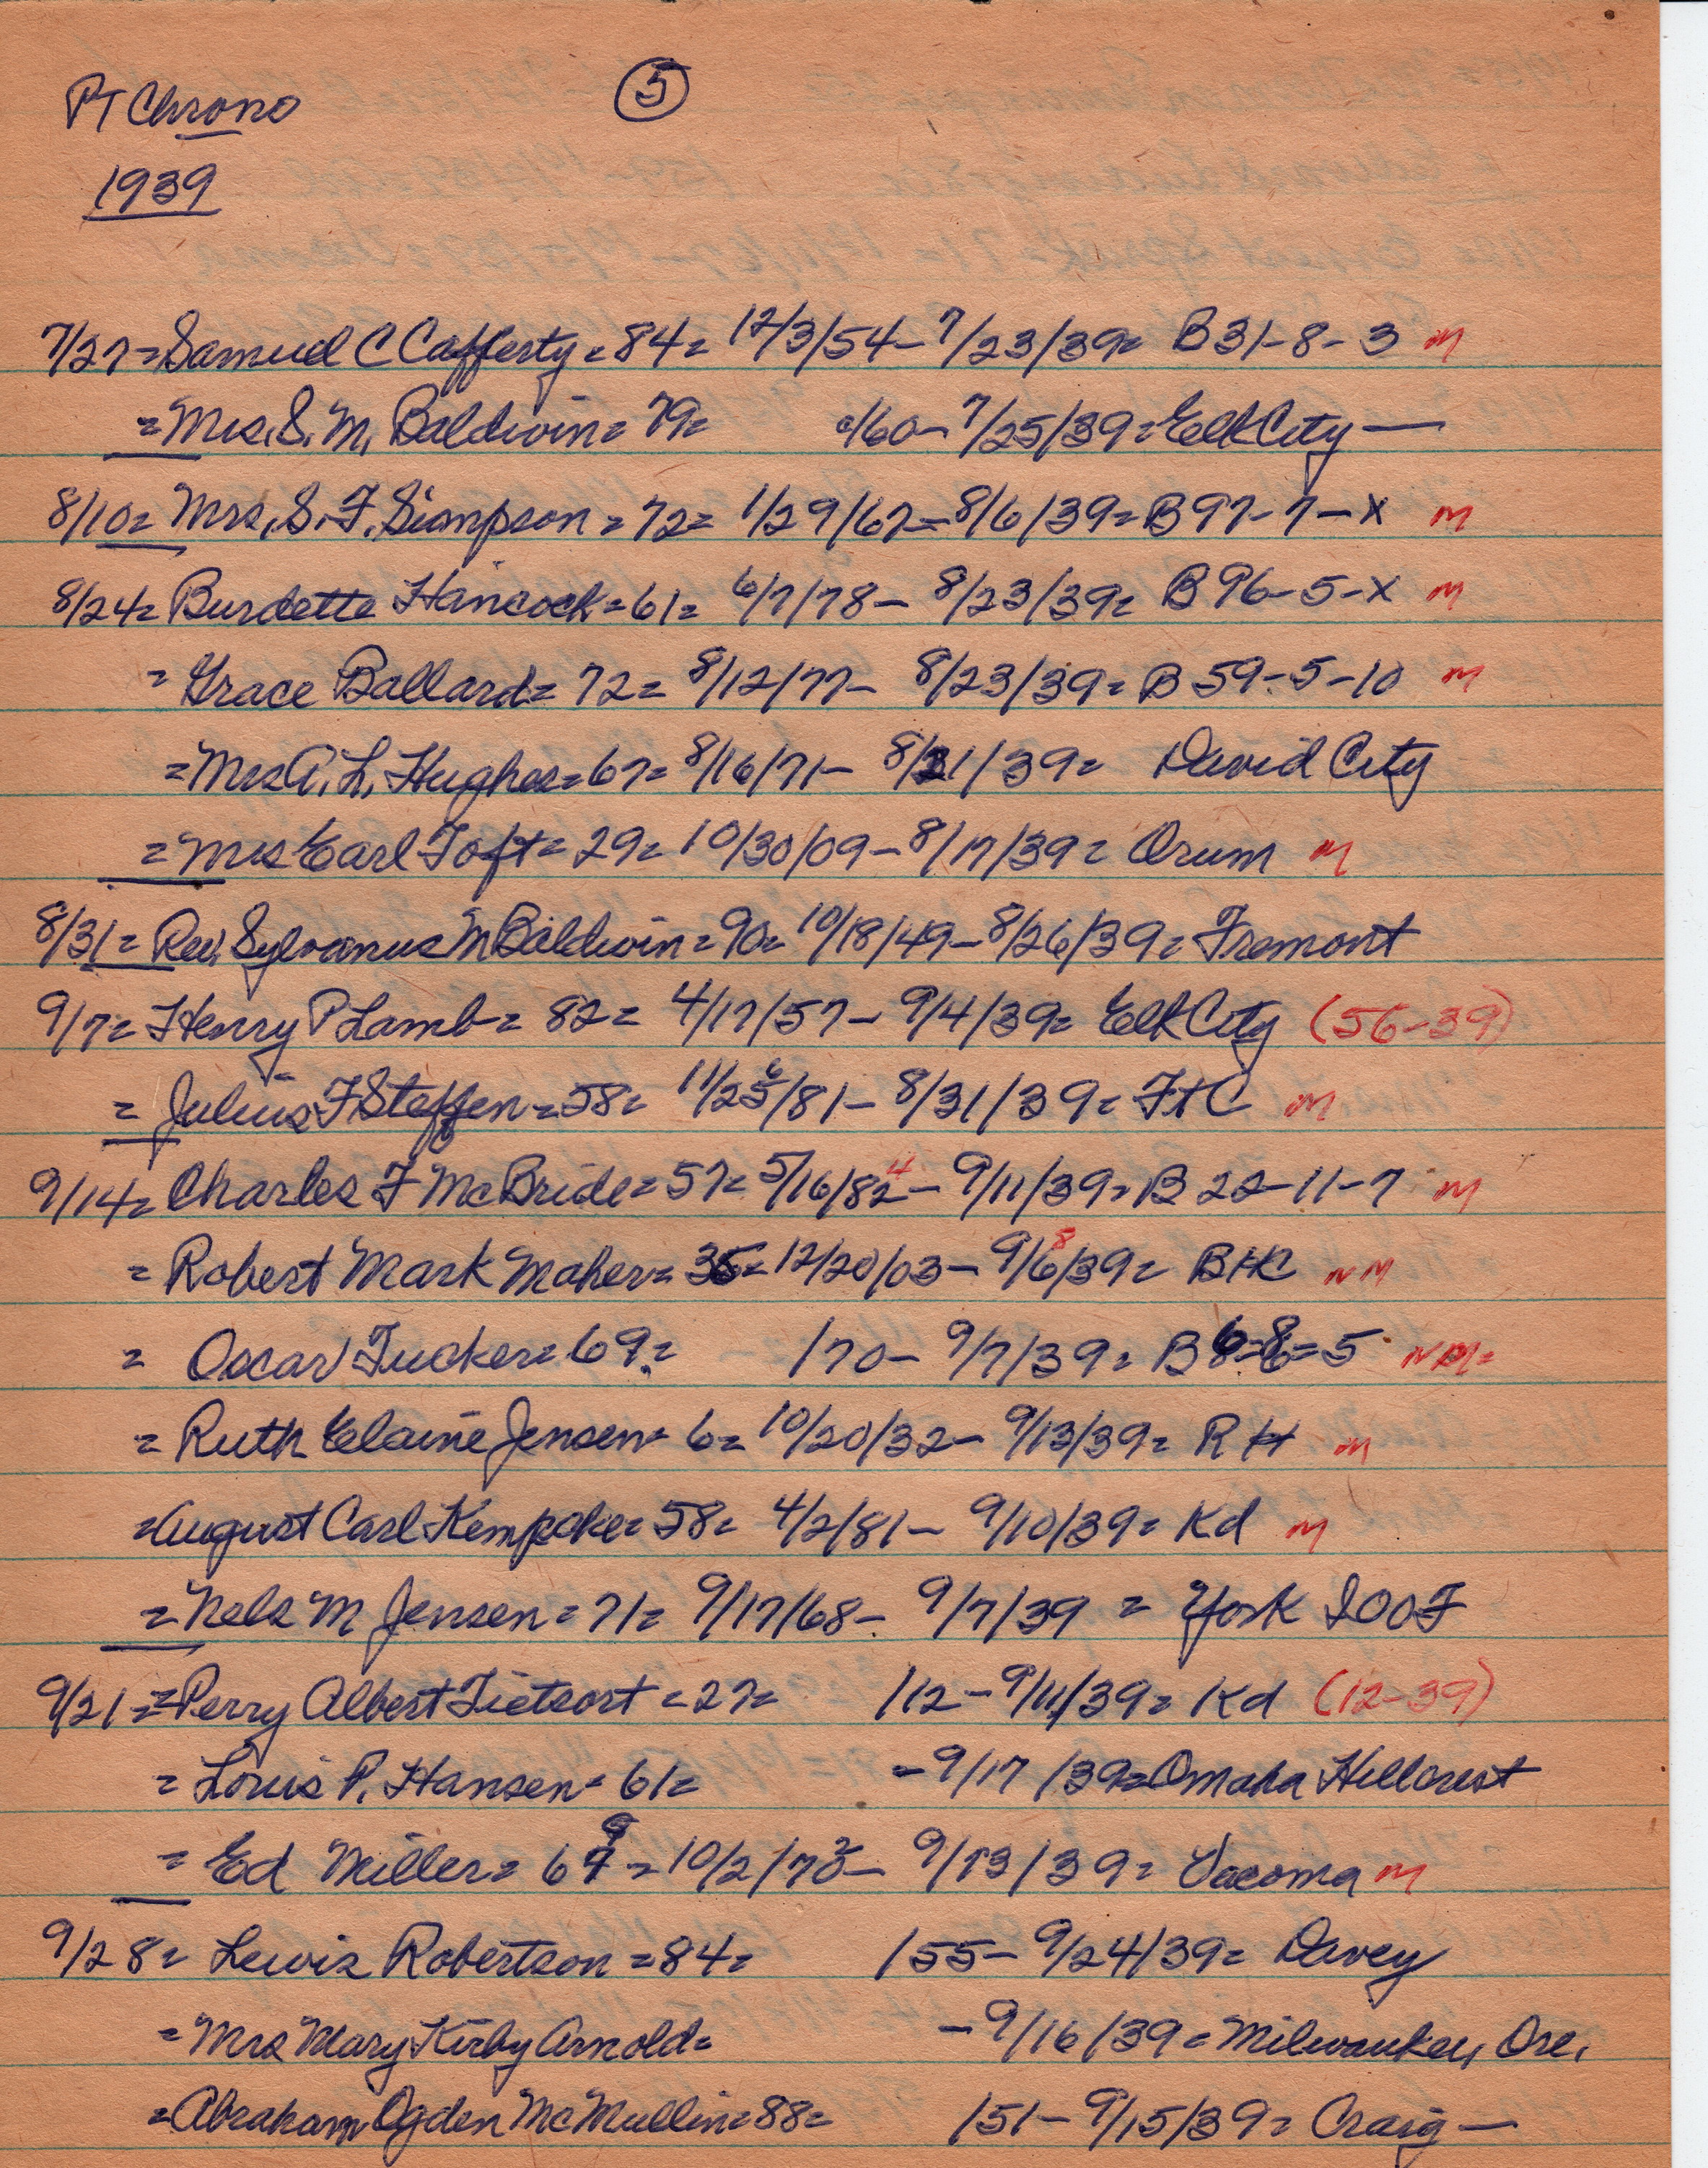 PT Chrono ⑤
1939
7/27 = Samuel C Cafferty = 84 = 12/3/54 - 7/23/39 = B 31-8-3 M
= Mrs. S. M. Baldwin = 79 = /60 - 7/25/39 = Elk City —
8/10 = Mrs. S. F. Simpson = 72 = 1/29/67 - 8/6/39 = B 97-7-X M
8/24 = Burdette Hancock = 61 = 6/7/78 - 8/23/39 = B 96-5-X M
= Grace Ballard = 72 = 8/12/77 - 8/23/39 = B 59-5-10 M
= Mrs A. L. Hughes = 67 = 8/16/71 - 8/21/39 = David City
= Mrs Earl Toft = 29 = 10/30/09 - 8/17/39 = Orum M
8/31 = Rev. Sylvanus M Baldwin = 90 = 10/18/49 - 8/26/39 = Fremont
9/7 = Henry P Lamb = 82 = 4/17/57 - 9/4/39 = Elk City (56-39)
= Julius F Steffen = 58 = 11/25 6/81 - 8/31/39 = FtC M
9/14 = Charles F McBride = 57 = 5/16/82 4 - 9/11/39 = B 22-11-7 M
= Robert Mark Maher = 35 = 12/20/03 - 9/6 8/39 = BHC NM
= Oscar Tucker = 69 = /70 - 9/7/39 = B 6-8-5 NM =
= Ruth Elaine Jensen = 6 = 10/20/32 - 9/13/39 = R H M
= August Carl Kempcke = 58 = 4/2/81 - 9/10/39 = Kd M
= Nels M Jensen = 71 = 9/17/68 - 9/7/39 = York IOOF
9/21 = = Perry Albert Tietsort = 27 = /12 - 9/11/39 = Kd (12-39)
= Louis P. Hansen = 61 = - 9/17/39 = Omaha Hillcrest
= Ed Miller = 67 9 = 10/2/70 2 - 9/13/39 = Tacoma M
9/28 = Lewis Robertson = 84 = /55 - 9/24/39 = Davey
= Mrs Mary Kirby Arnold = - 9/16/39 = Milwaukey, Ore.
= Abraham Ogden McMullin = 88 = /51 - 9/15/39 = Craig —